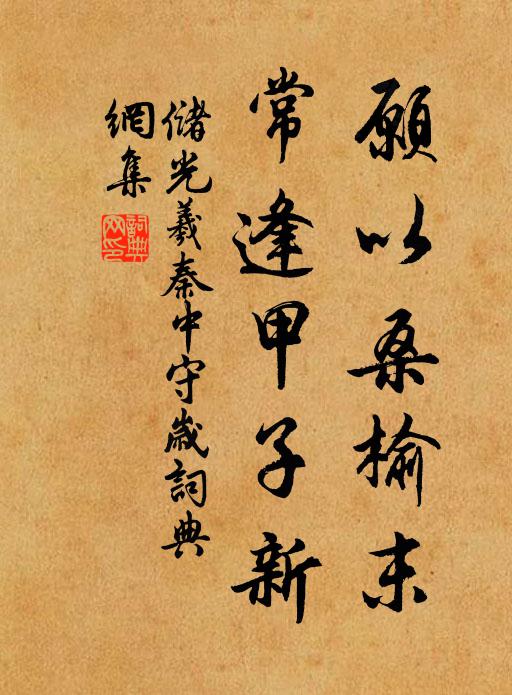 願以桑榆末
常逢甲子新
儲光羲秦中守歲詞典
網集
詞典網印